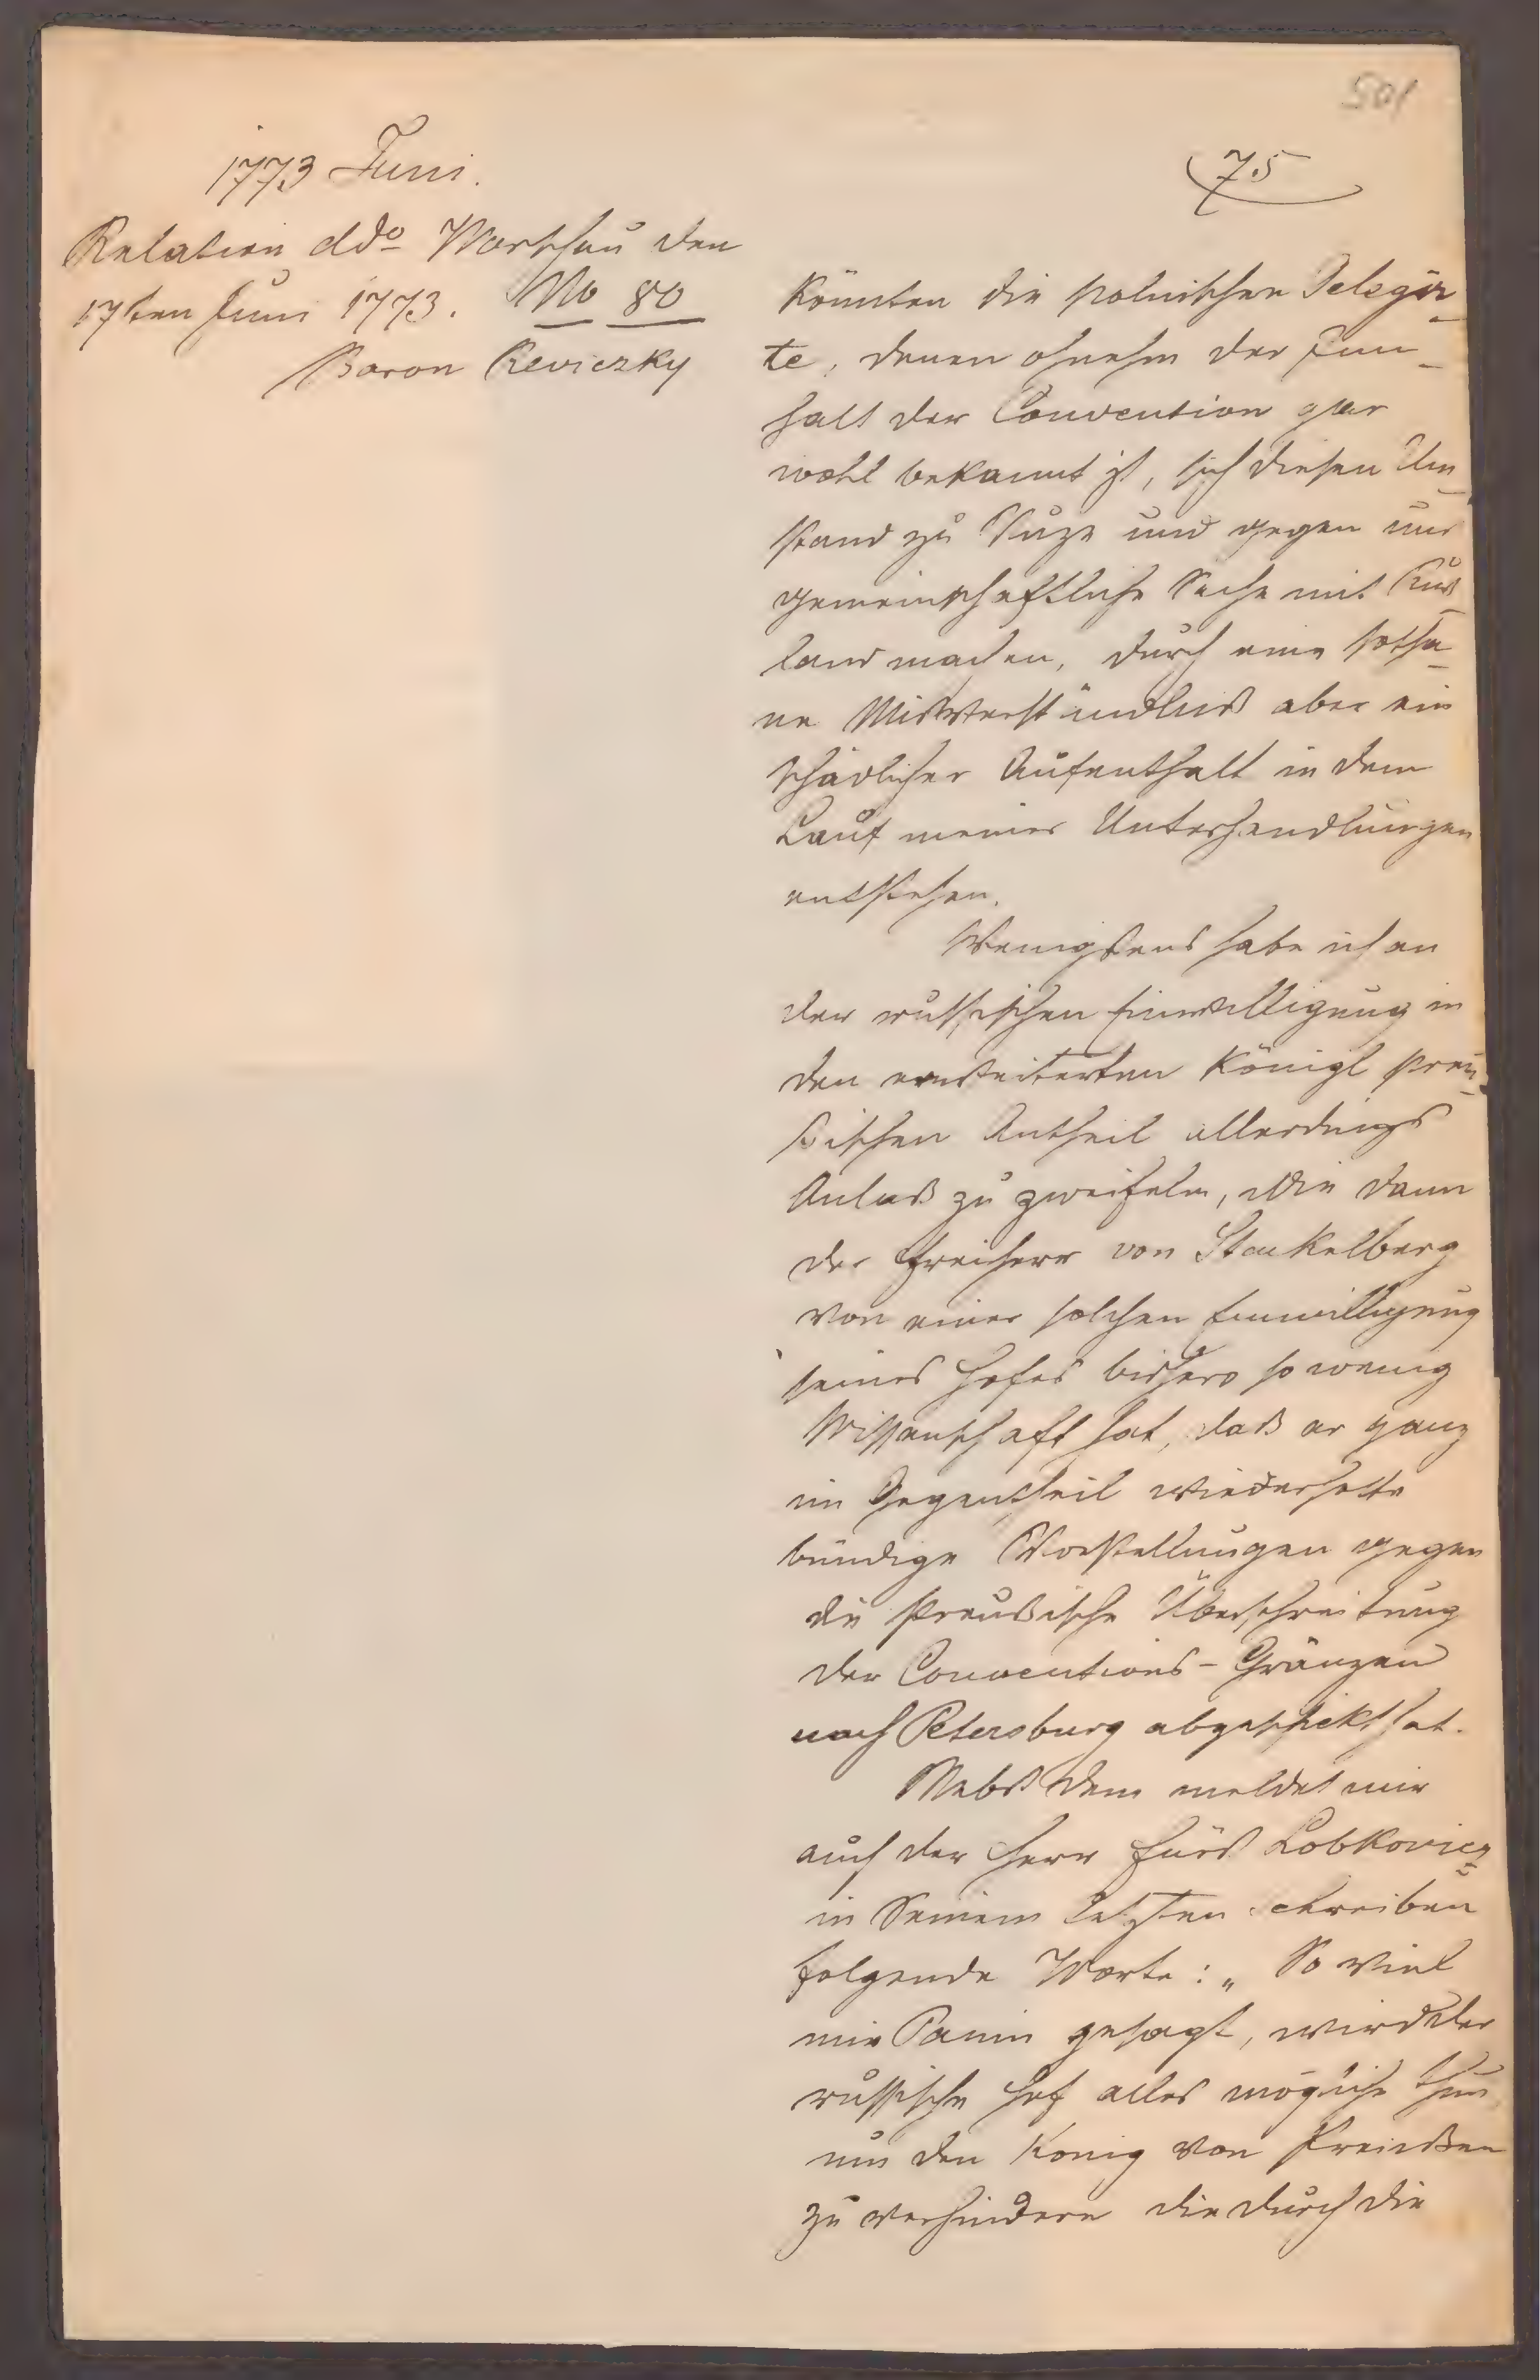 501
1773 Juni.
75
Relation ddo Warschau den
17ten Juni 1773. No 80
Baron Reviczky
könnten die polnischen Delegir-
te, denen ohnehin der Inn-
halt der Convention gar
wohl bekannt ist, sich diesen Um-
stand zu Nuze und gegen uns
gemeinschaftliche Sache mit Ruß-
land machen, durch eine sotha-
ne Mißverständniß aber ein
schädlicher Aufenthalt in dem
Lauf meiner Unterhandlungen
entstehen.
Wenigstens habe ich an
der russischen Einwilligung in
den erweiterten Königl preu-
ßischen Antheil allerdings
Anlaß zu zweifeln, wie dann
der Freiherr von Stackelberg
von einer solchen Einwilligung
seines Hofes bishero so wenig
Wissenschaft hat, daß er ganz
im Gegentheil wiederholte
bündige Vorstellungen gegen
die Preußische Überschreitung
der Conventions-Gränzen
nach Petersburg abgeschickt hat.
Nebst dem meldet mir
auch der Herr Fürst Lobkovicz
in Seinem letzten Schreiben
folgende Worte: „ So viel
mir Panin gesagt, wird der
russische Hof alles mögliche thun
um den König von Preußen
zu verhindern die durch die